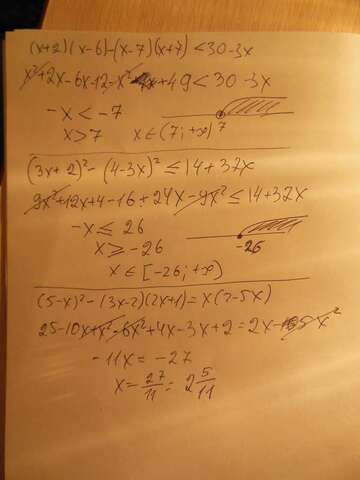 (x+2)(x-6)-(x-7)(x+7)<30-3x
x²+2x-6x-12-x²+49<30-3x
-x<-7
x>7 x∈(7;+∞) 7
(3x+2)²-(4-3x)²≤14+37x
9x²+12x+4-16+24x-9x²≤14+37x
-x≤26
x≥-26 -26
x∈[-26;+∞)
(5-x)²-(3x-2)(2x+1)=x(2-5x)
25-10x+x²-6x²+4x-3x+2=2x-5x²
-11x=-27
x=27/11=2 5/11